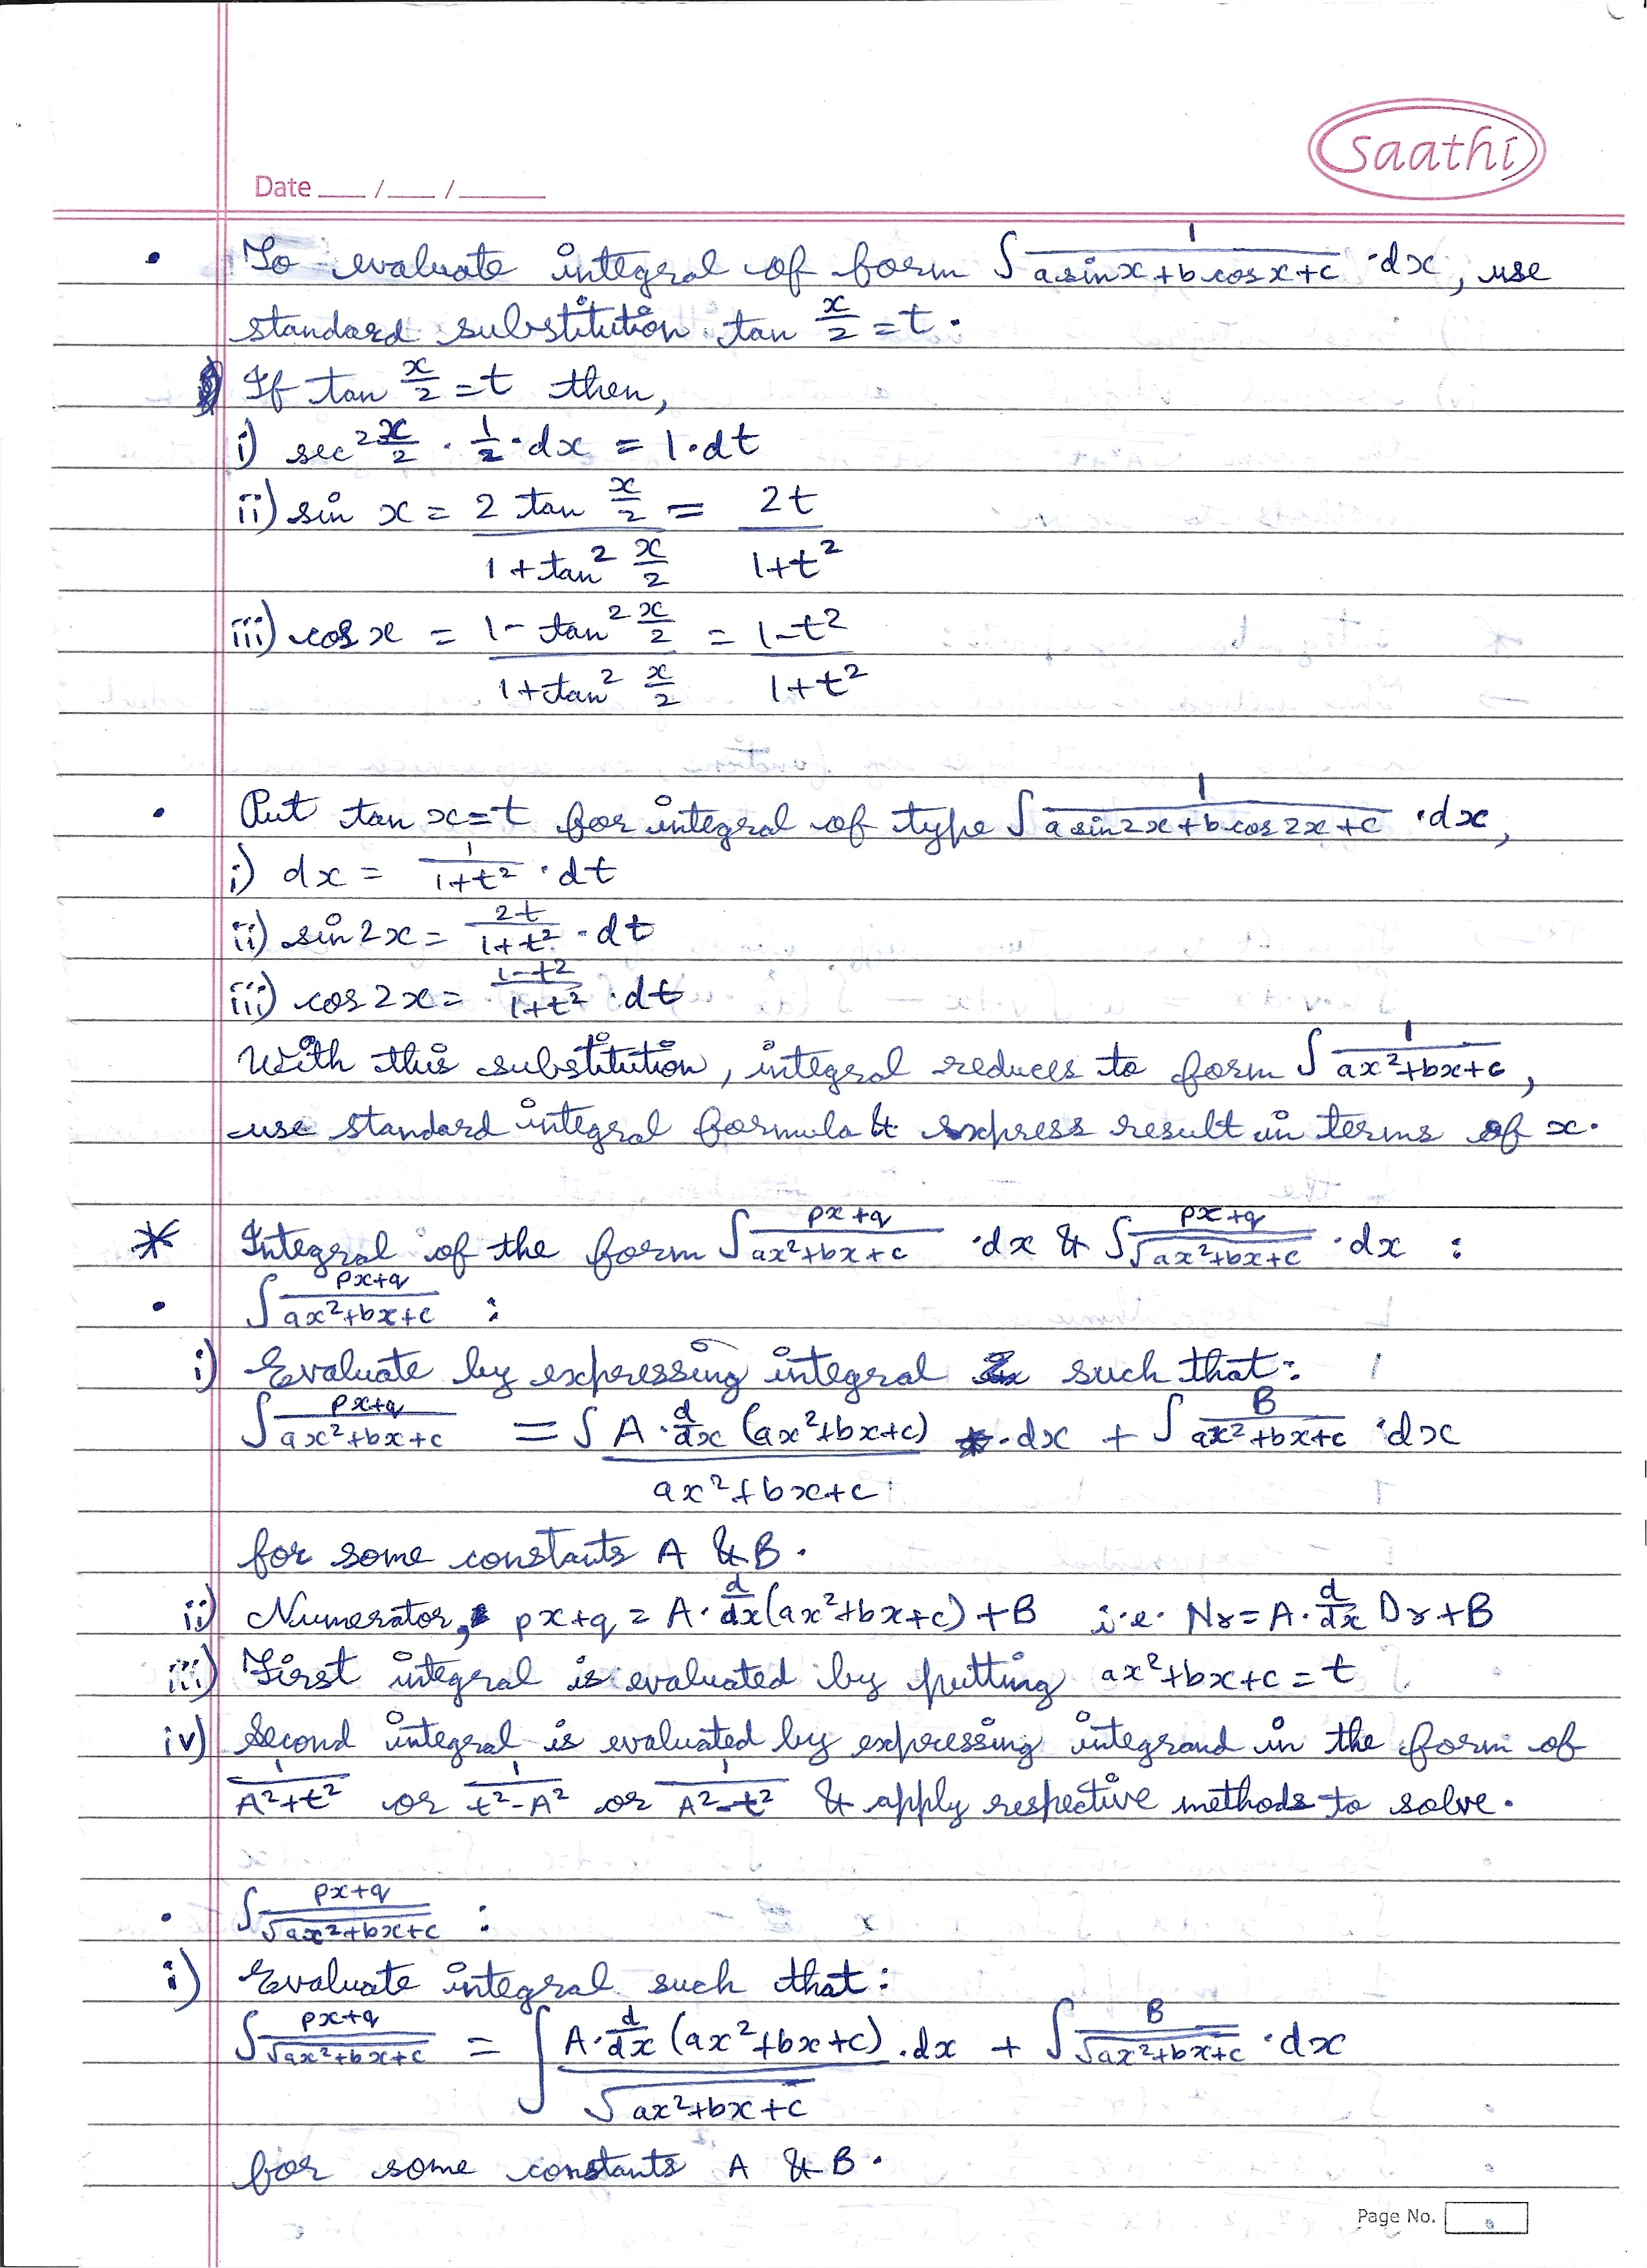 saathi
Date ___ / ___ / ______
• To evaluate integral of form ∫ 1/(a sin x + b cos x + c) · dx, use
standard substitution tan x/2 = t.
If tan x/2 = t then,
i) sec² x/2 · 1/2 · dx = 1 · dt
ii) sin x = (2 tan x/2)/(1 + tan² x/2) = 2t/(1+t²)
iii) cos x = (1 - tan² x/2)/(1 + tan² x/2) = (1-t²)/(1+t²)
• Put tan x = t for integral of type ∫ 1/(a sin 2x + b cos 2x + c) · dx,
i) dx = 1/(1+t²) · dt
ii) sin 2x = 2t/(1+t²) · dt
iii) cos 2x = (1-t²)/(1+t²) · dt
With this substitution, integral reduces to form ∫ 1/(ax²+bx+c),
use standard integral formula & express result in terms of x.
* Integral of the form ∫ (px+q)/(ax²+bx+c) · dx & ∫ (px+q)/√(ax²+bx+c) · dx :
• ∫ (px+q)/(ax²+bx+c) :
i) Evaluate by expressing integral such that:
∫ (px+q)/(ax²+bx+c) = ∫ (A · d/dx (ax²+bx+c))/(ax²+bx+c) · dx + ∫ B/(ax²+bx+c) · dx
for some constants A & B.
ii) Numerator, px+q = A · d/dx (ax²+bx+c) + B i.e. Nr = A · d/dx Dr + B
iii) First integral is evaluated by putting ax²+bx+c = t
iv) Second integral is evaluated by expressing integrand in the form of
1/(A²+t²) or 1/(t²-A²) or 1/(A²-t²) & apply respective methods to solve.
• ∫ (px+q)/√(ax²+bx+c) :
i) Evaluate integral such that:
∫ (px+q)/√(ax²+bx+c) = ∫ (A · d/dx (ax²+bx+c))/√(ax²+bx+c) . dx + ∫ B/√(ax²+bx+c) · dx
for some constants A & B.
Page No.